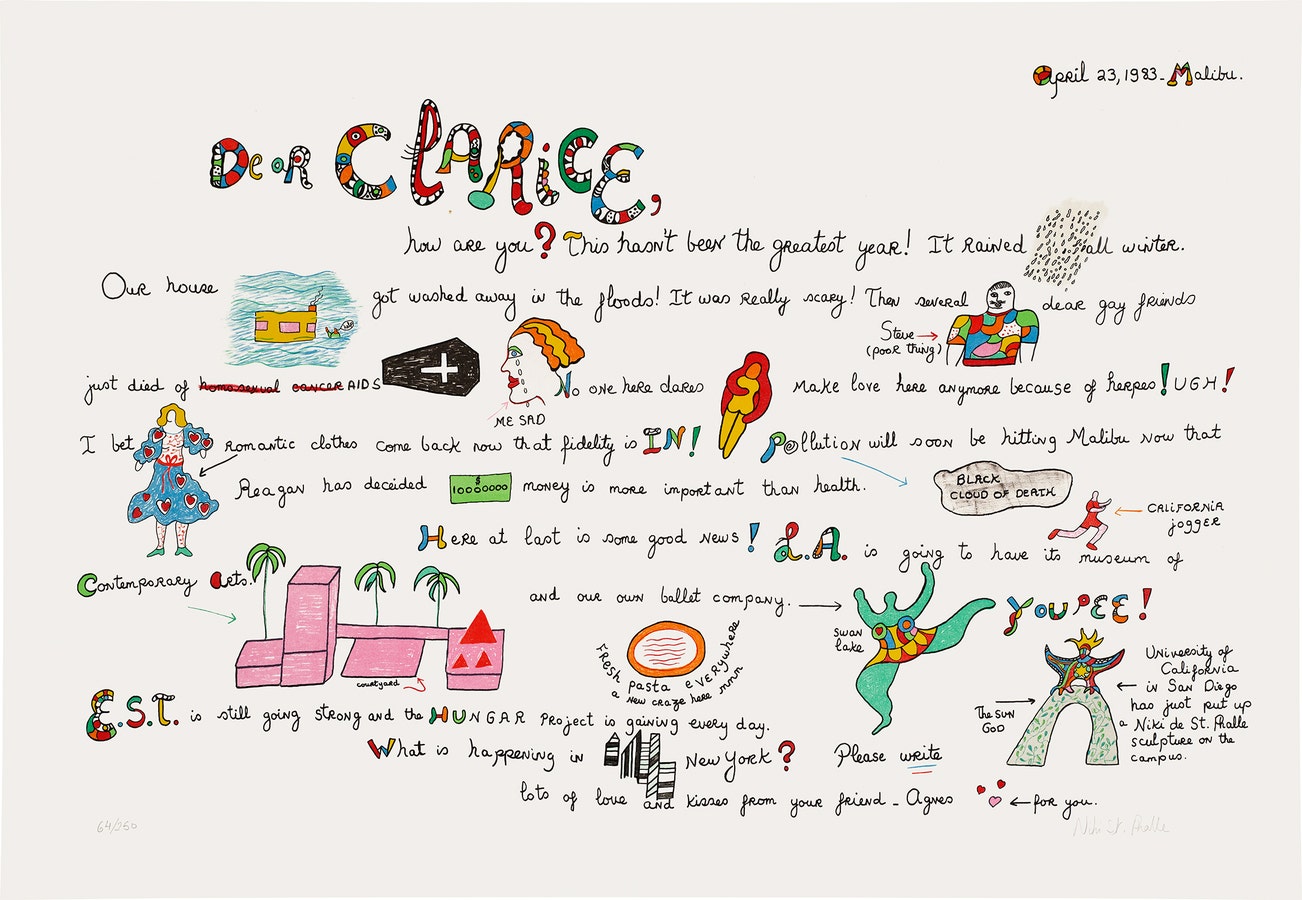 April 23, 1983 - Malibu.
Dear Clarice,
how are you? This hasn't been the greatest year! It rained all winter.
Our house got washed away in the floods! It was really scary! Then several dear gay friends
Steve
(poor thing)
just died of homosexual cancer AIDS No one here dares make love here anymore because of herpes! UGH!
ME SAD
I bet romantic clothes come back now that fidelity is IN! Pollution will soon be hitting Malibu now that
Reagan has deceided $ 10000000 money is more important than health.
BLACK
CLOUD OF DEATH
CALIFORNIA
jogger
Here at last is some good news! L.A. is going to have its museum of
Contemporary Arts. and our own ballet company. YOUPEE!
swan
lake
courtyard
Fresh pasta everywhere
a new craze here mmm
University of
California
in San Diego
has just put up
a Niki de St. Phalle
sculpture on the
campus.
The SUN
GOD
E.S.T. is still going strong and the HUNGAR Project is gaining every day.
What is happening in New York? Please write
lots of love and kisses from your friend - Agnes for you.
64/250
Niki St. Phalle